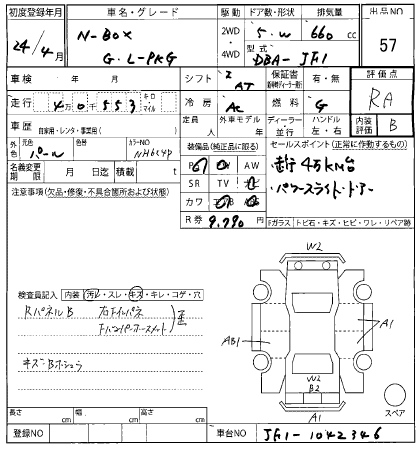 初度登録年月 車名・グレード 駆動 ドア数・形状 排気量 出品NO
24年4月 N-BOX 2WD 5.W 660cc 57
G.L-PKG ・4WD 型式 DBA-JF1
車検 年 月 シフト AT 保証書 有・無 評価点
走行 4 0 5 5 3 キロ・マイル 冷房 AC 燃料 G RA
車歴 自家用・レンタ・事業用( ) 定員 人 外車モデル 年 ディーラー・並行 ハンドル 左・右 内装評価 B
外色 元色 パール 色NO カラーNO NH624P 装備品(純正品に限る) セールスポイント(正常に作動するもの)
名義変更期限 月 日迄 積載 t PS PW AW 走行4万KM台
注意事項(欠品・修復・不具合箇所および状態) SR TV ナビ パワースライドドアー
カワ エアB AB
R券 9,790 Fガラス トビ石・キズ・ヒビ・ワレ・リペア跡
W2
検査員記入 内装 汚れ・スレ・キズ・キレ・コゲ・穴
RパネルB
AB1 A1
キズ・Bホシュウ
W2
B2
A1 スペア
長さ cm 幅 cm 高さ cm
登録NO 車台NO JF1-1042346